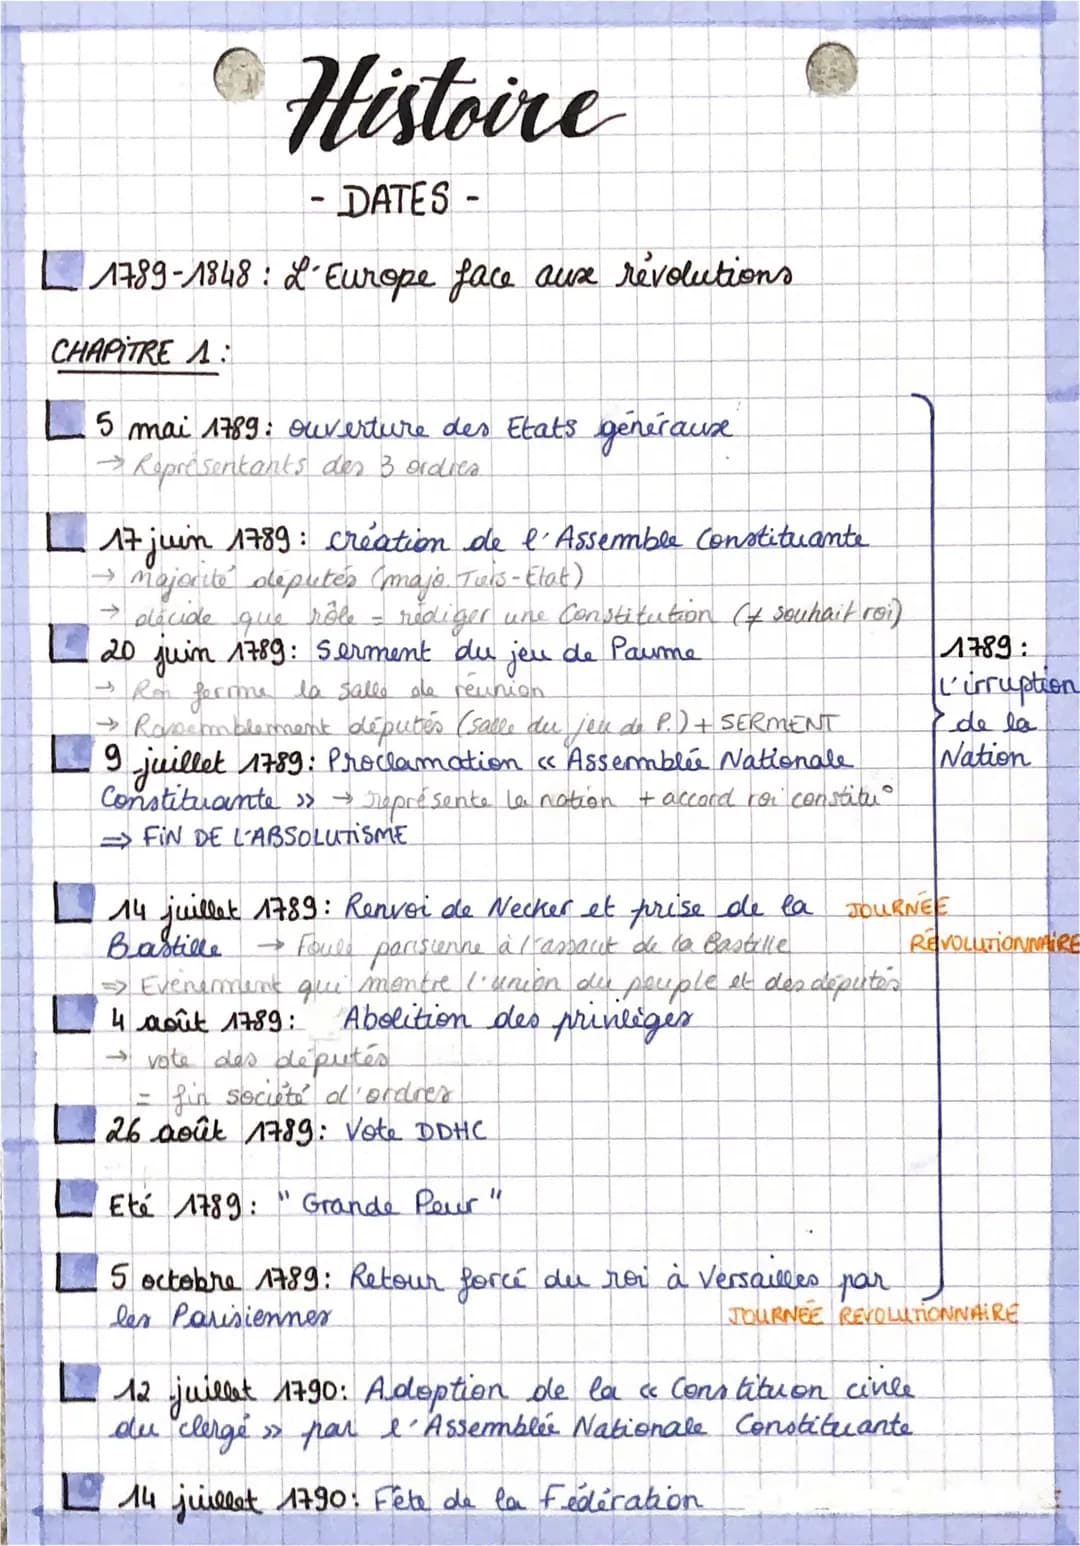 Histoire
- DATES -
1789-1848 : L'Europe face aux révolutions
CHAPITRE 1 :
5 mai 1789 : ouverture des Etats généraux
→ Représentants des 3 ordres
17 juin 1789 : création de l'Assemblée Constituante
→ majorité députés (majo. Tiers-Etat)
→ décide que rôle = rédiger une Constitution (≠ souhait roi)
20 juin 1789 : Serment du jeu de Paume
→ Roi ferme la salle de réunion
→ Rassemblement députés (salle du jeu de P.) + SERMENT
9 juillet 1789 : Proclamation « Assemblée Nationale
Constituante » → représente la nation + accord roi constitu°
⇒ FIN DE L'ABSOLUTISME
1789 :
L'irruption
de la
Nation
14 juillet 1789 : Renvoi de Necker et prise de la JOURNÉE
Bastille → Foule parisienne à l'assaut de la Bastille RÉVOLUTIONNAIRE
⇒ Evènement qui montre l'union du peuple et des députés
4 août 1789 : Abolition des privilèges
→ vote des députés
= fin société d'ordres
26 août 1789 : Vote DDHC
Eté 1789 : " Grande Peur "
5 octobre 1789 : Retour forcé du roi à Versailles par
les Parisiennes JOURNÉE REVOLUTIONNAIRE
12 juillet 1790 : Adoption de la « Constituon civile
du clergé » par l'Assemblée Nationale Constituante
14 juillet 1790 : Fête de la Fédération